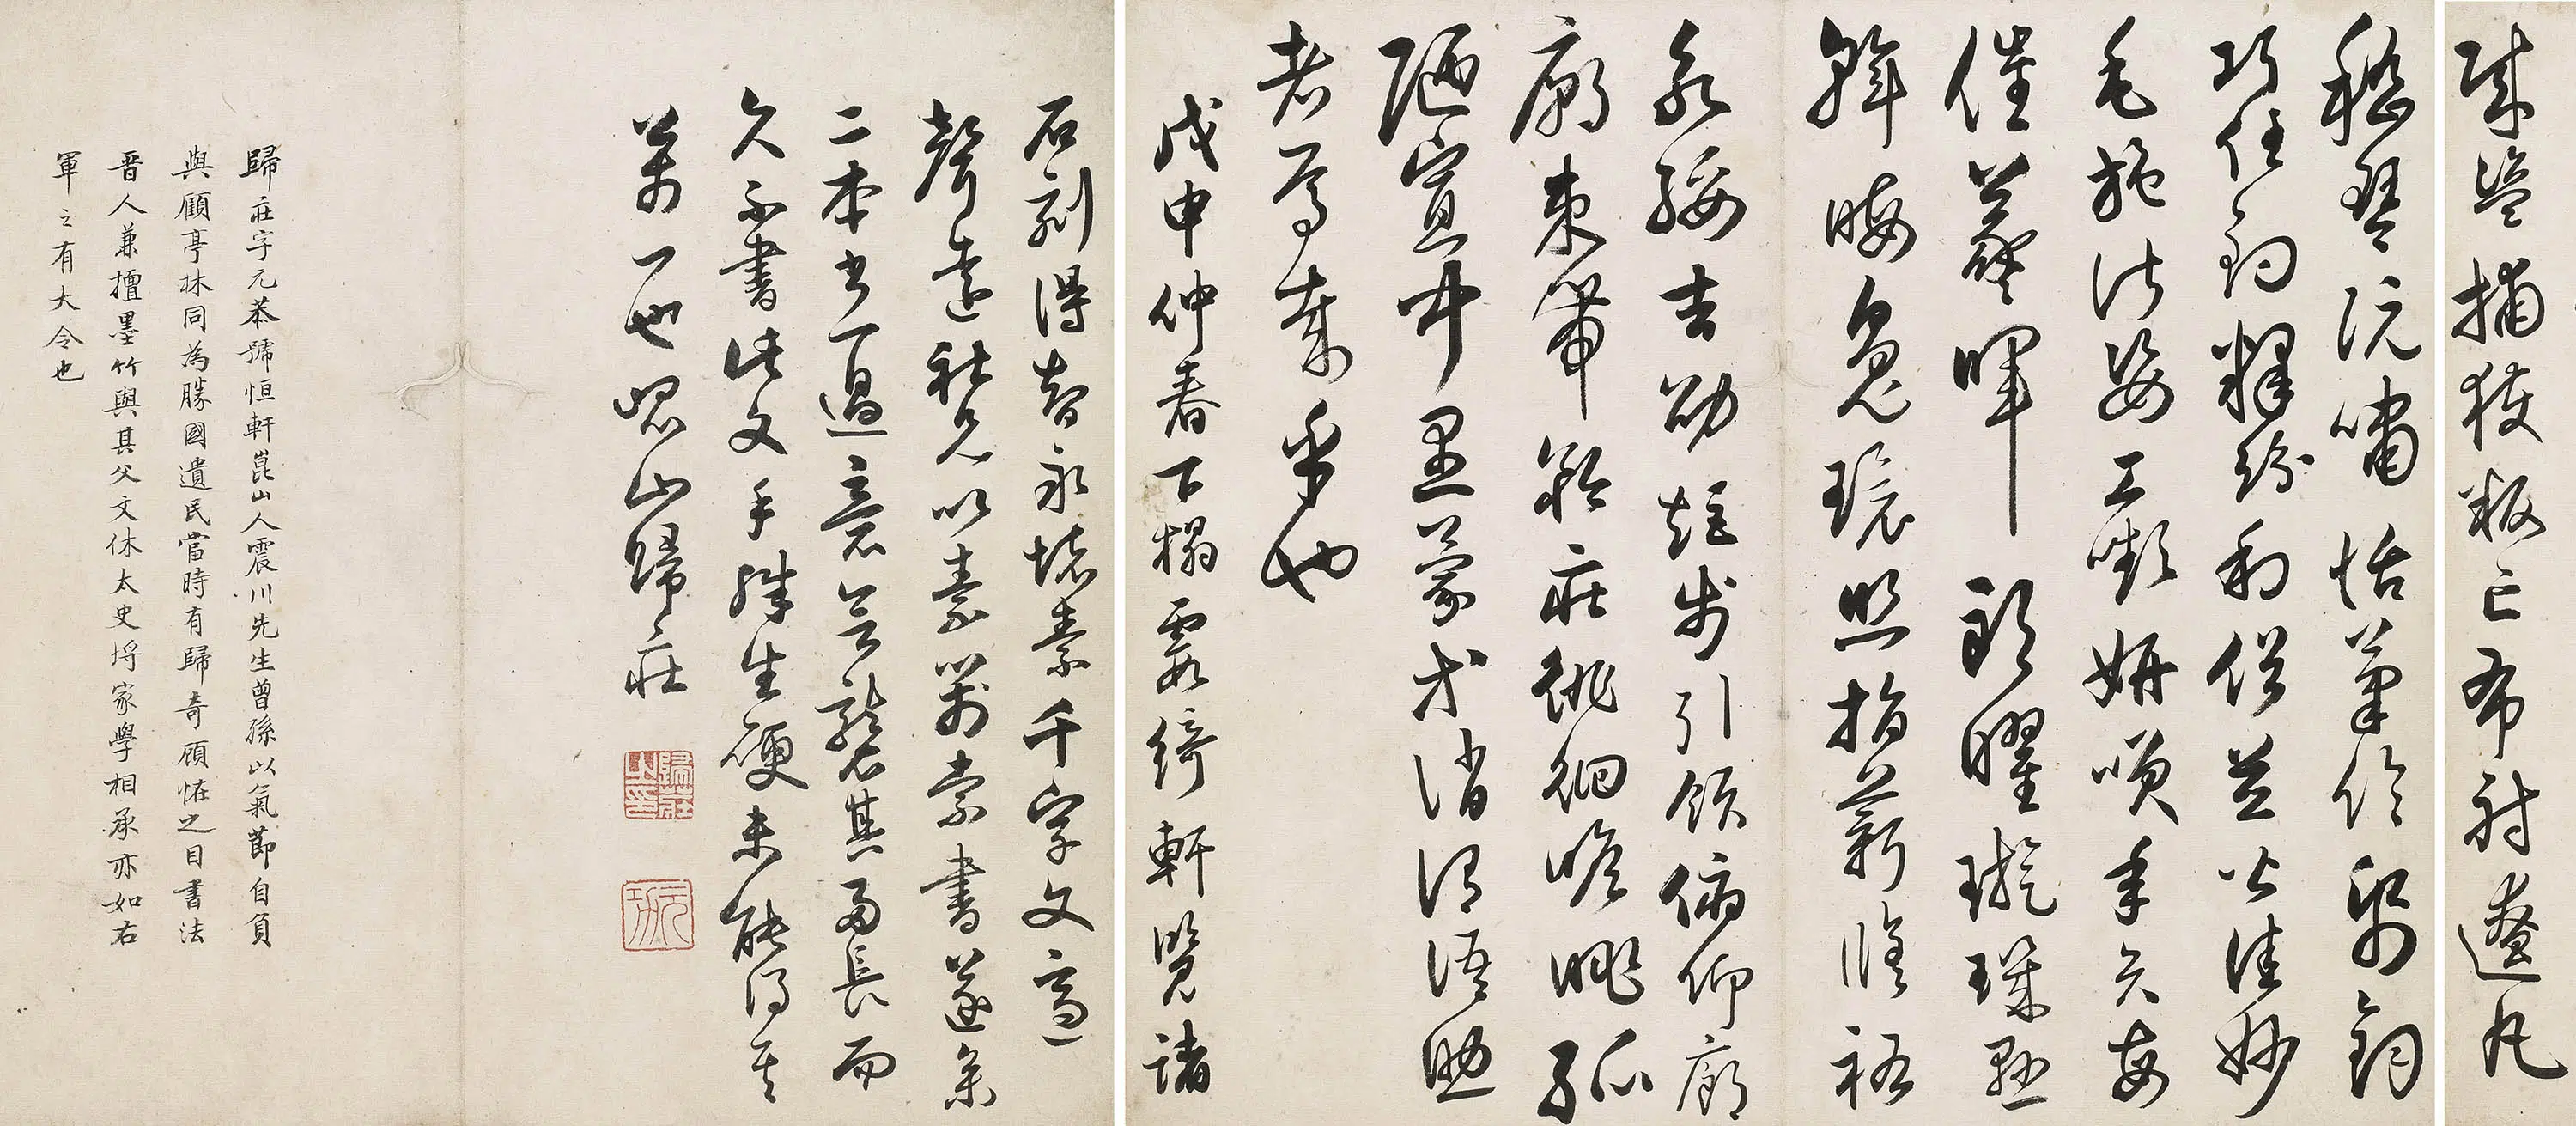 賊盜捕獲叛亡布射遼丸
嵇琴阮嘯恬筆倫紙鈞
巧任釣釋紛利俗並皆佳妙
毛施淑姿工顰妍笑年矢每
催羲暉朗曜璇璣懸
斡晦魄環照指薪修祜
永綏吉劭矩步引領俯仰廊
廟束帶矜莊徘徊瞻眺孤
陋寡聞愚蒙等誚謂語助
者焉哉乎也
戊申仲春下榻霞綺軒覽諸
石刻得智永懷素千字文適
聲遠社兄以素冊索書遂參
二本書一過意欲襲其兩長而
久不書此文手腕生硬未能得其
萬一也崑山歸莊
歸莊之印
歸莊字元恭號恒軒崑山人震川先生曾孫以氣節自負
與顧亭林同為勝國遺民當時有歸奇顧怪之目書法
晉人兼擅墨竹與其父文休太史埒家學相承亦如右
軍之有大令也